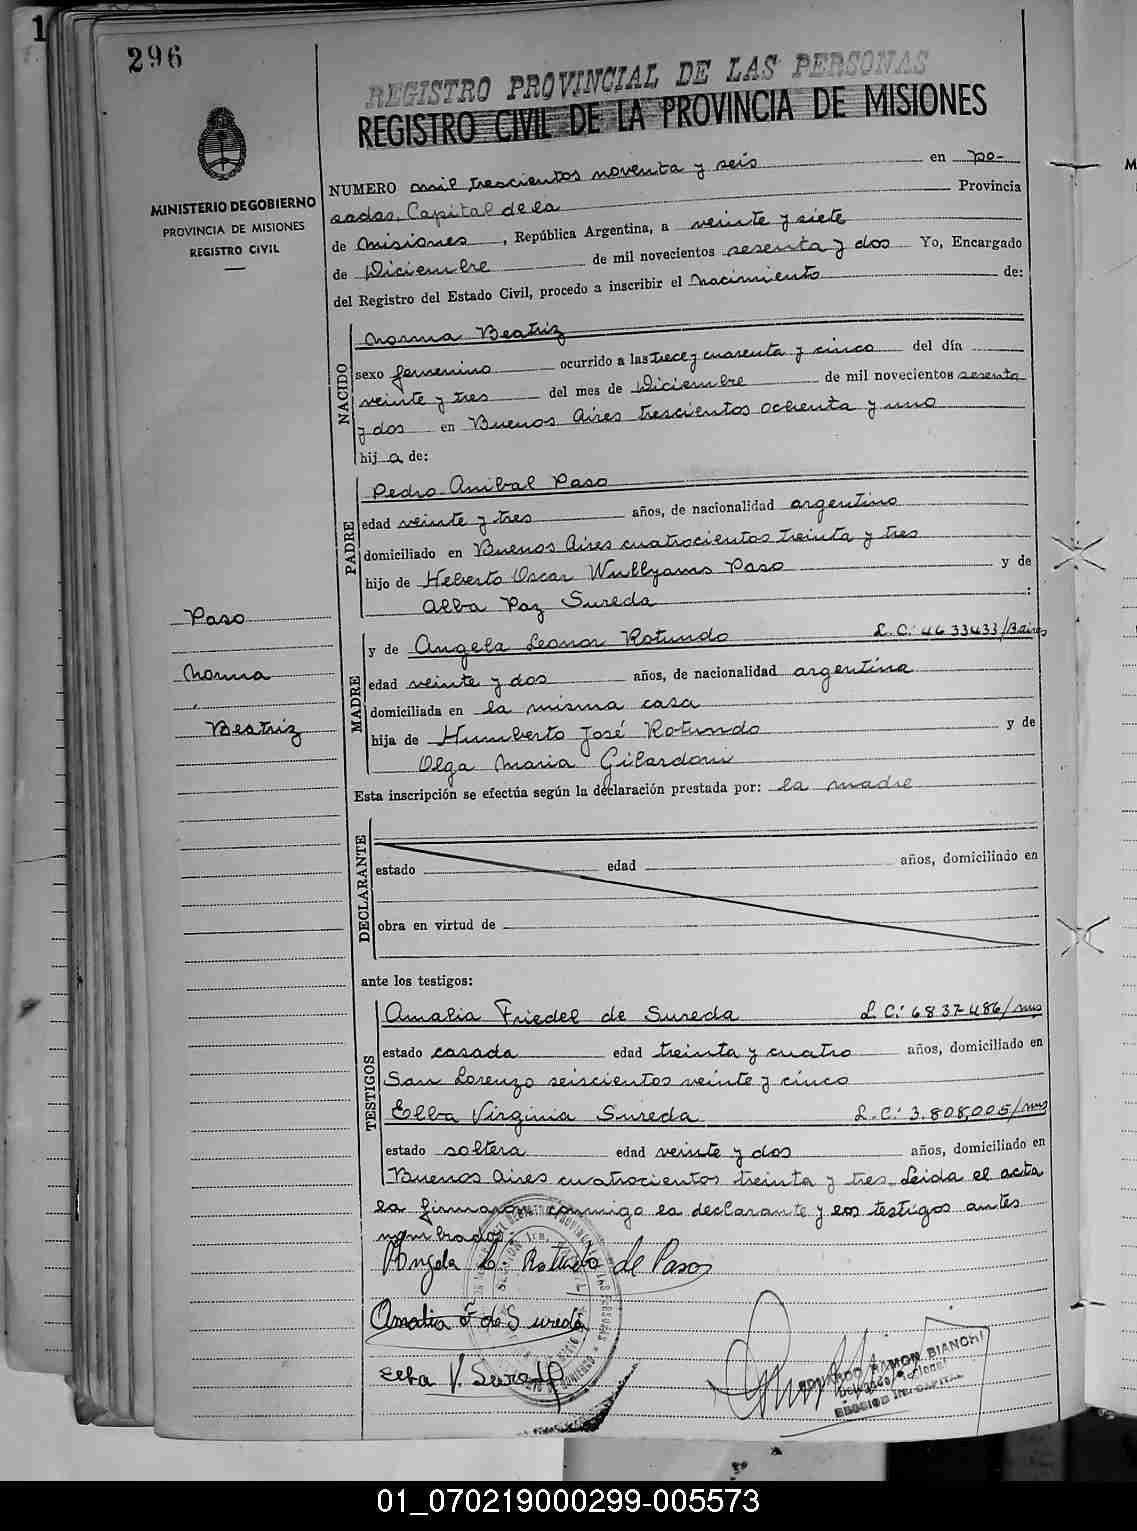 1
296
REGISTRO PROVINCIAL DE LAS PERSONAS
REGISTRO CIVIL DE LA PROVINCIA DE MISIONES
MINISTERIO DE GOBIERNO
PROVINCIA DE MISIONES
REGISTRO CIVIL
NUMERO mil trescientos noventa y seis en Po-
sadas, Capital de la Provincia
de Misiones, República Argentina, a veinte y siete
de Diciembre de mil novecientos sesenta y dos Yo, Encargado
del Registro del Estado Civil, procedo a inscribir el Nacimiento de:
NACIDO
Norma Beatriz
sexo femenino ocurrido a las trece y cuarenta y cinco del día
veinte y tres del mes de Diciembre de mil novecientos sesenta
y dos en Buenos Aires trescientos ochenta y uno
hij a de:
PADRE
Pedro Anibal Paso
edad veinte y tres años, de nacionalidad argentino
domiciliado en Buenos Aires cuatrocientos treinta y tres
hijo de Heberto Oscar Wullyams Paso y de
Alba Paz Sureda :
Paso
Norma
Beatriz
MADRE
y de Angela Leonor Rotundo L.C: 4633433/Baires
edad veinte y dos años, de nacionalidad argentina
domiciliada en la misma casa
hija de Humberto José Rotundo y de
Olga Maria Gilardoni
Esta inscripción se efectúa según la declaración prestada por: la madre
DECLARANTE
estado edad años, domiciliado en
obra en virtud de
ante los testigos:
TESTIGOS
Amalia Friedel de Sureda L.C: 6837486/mns
estado casada edad treinta y cuatro años, domiciliado en
San Lorenzo seiscientos veinte y cinco
Elba Virginia Sureda L.C: 3.808,005/mns
estado soltera edad veinte y dos años, domiciliado en
Buenos Aires cuatrocientos treinta y tres. Leida el acta
la firmaron conmigo la declarante y los testigos antes
nombrados.
Angela L. Rotundo de Paso
Amalia F de Sureda
Elba V. Sureda
EDUARDO RAMON BIANCHI
Delegado Seccional
SECCION 1ra. CAPITAL
01_070219000299-005573